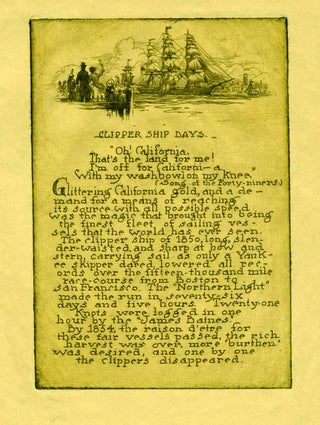 CLIPPER SHIP DAYS.
"Oh! California,
That's the land for me!
I'm off for Californi-a
With my washbowl on my Knee."
(Song of the Forty-niners.)
Glittering California gold, and a de-
mand for a means of reaching
its source with all possible speed
was the magic that brought into being
the finest fleet of sailing ves-
sels that the world has ever seen.
The clipper ship of 1850, long, slen-
der-waisted, and sharp at bow and
stern, carrying sail as only a Yank-
ee skipper dared, lowered all rec-
ords over the fifteen-thousand mile
race-course from Boston to
San Francisco. The "Northern Light"
made the run in seventy-six
days and five hours. Twenty-one
Knots were logged in one
hour by the "James Baines."
By 1854, the raison d'etre for
these fair vessels passed, the rich
harvest was over, more "burthen"
was desired, and one by one
the clippers disappeared.